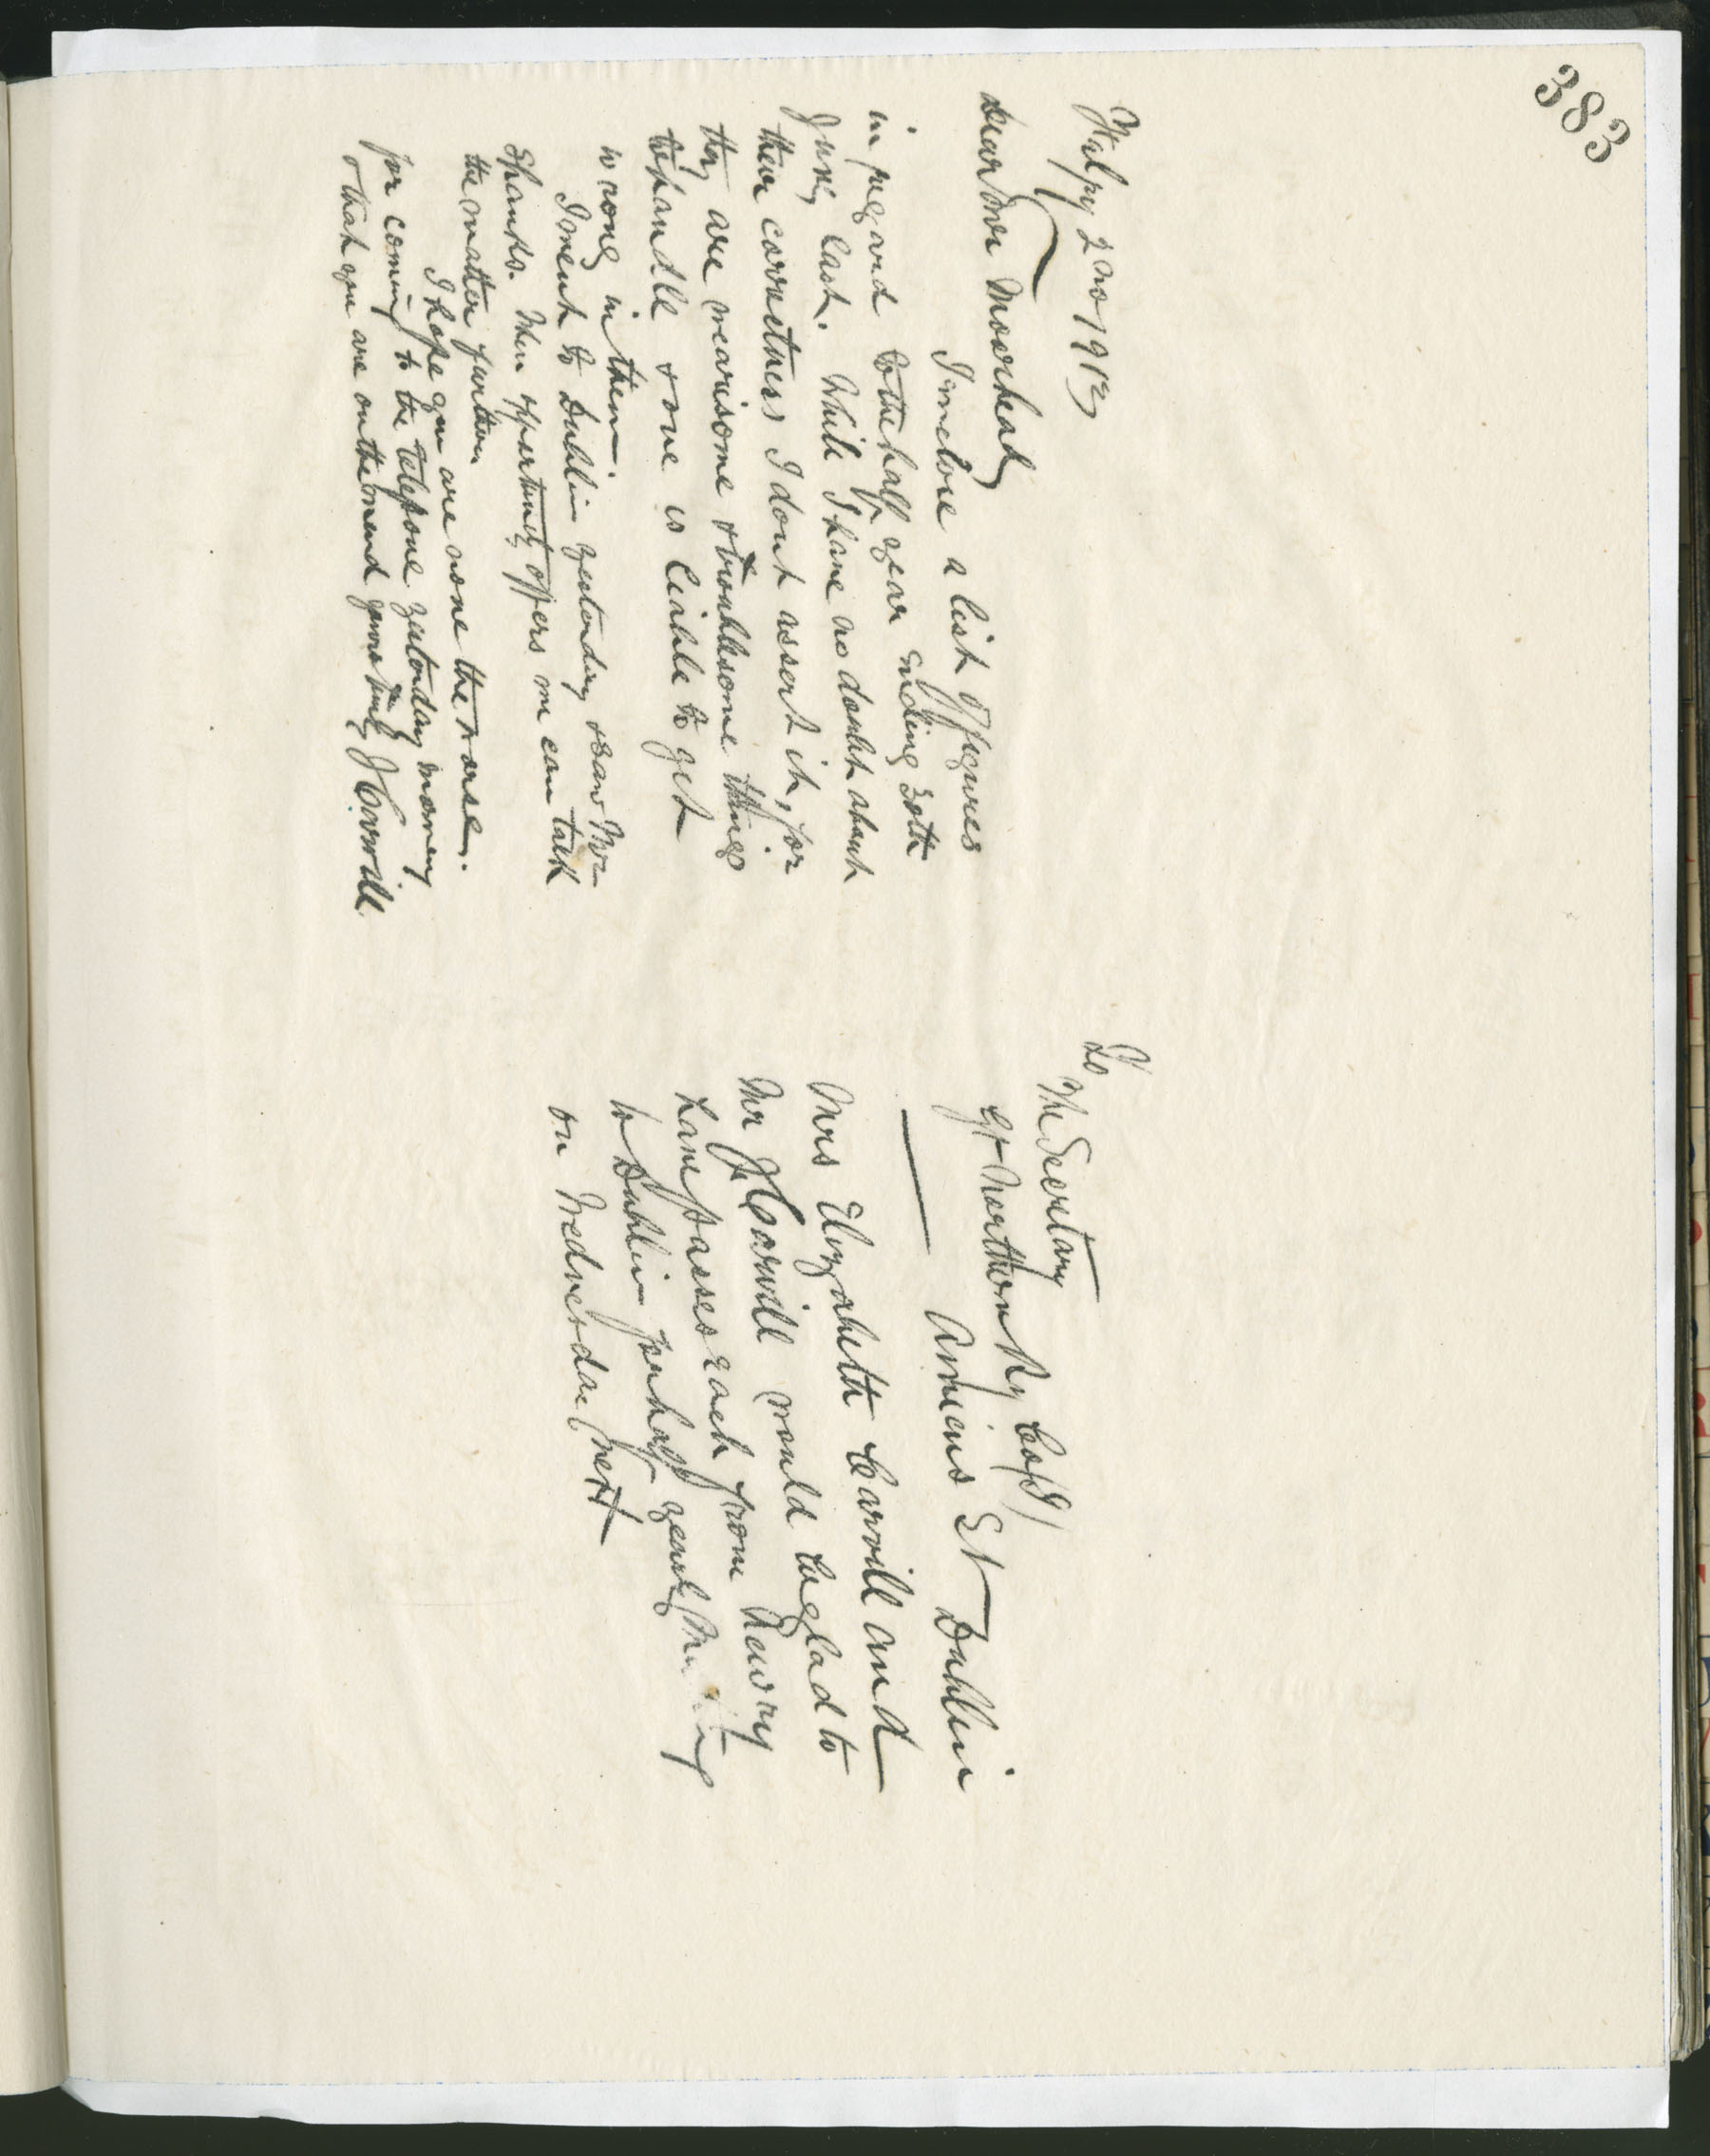 383
July 2nd 1913
Dear Mr Moorhead
I enclose a list of figures
in regard to the half year ending 30th
June last. While I have no doubt about
their correctness I dont assert it, for
they are wearisome & troublesome things
to handle & one is liable to get
wrong in them.
I went to Dublin yesterday & saw Mr
Shanks. When opportunity offers we can talk
the matter further
I hope you are none the worse
for coming to the telephone yesterday morning
& that you are on the mend yours truly J Carvill
To
The Secretary
Gt Northern Ry Co
Amiens St Dublin
Mrs Elizabeth Carvill and
Mr J Carvill would be glad to
have passes each from Newry
to Dublin for half yearly
on Wednesday next